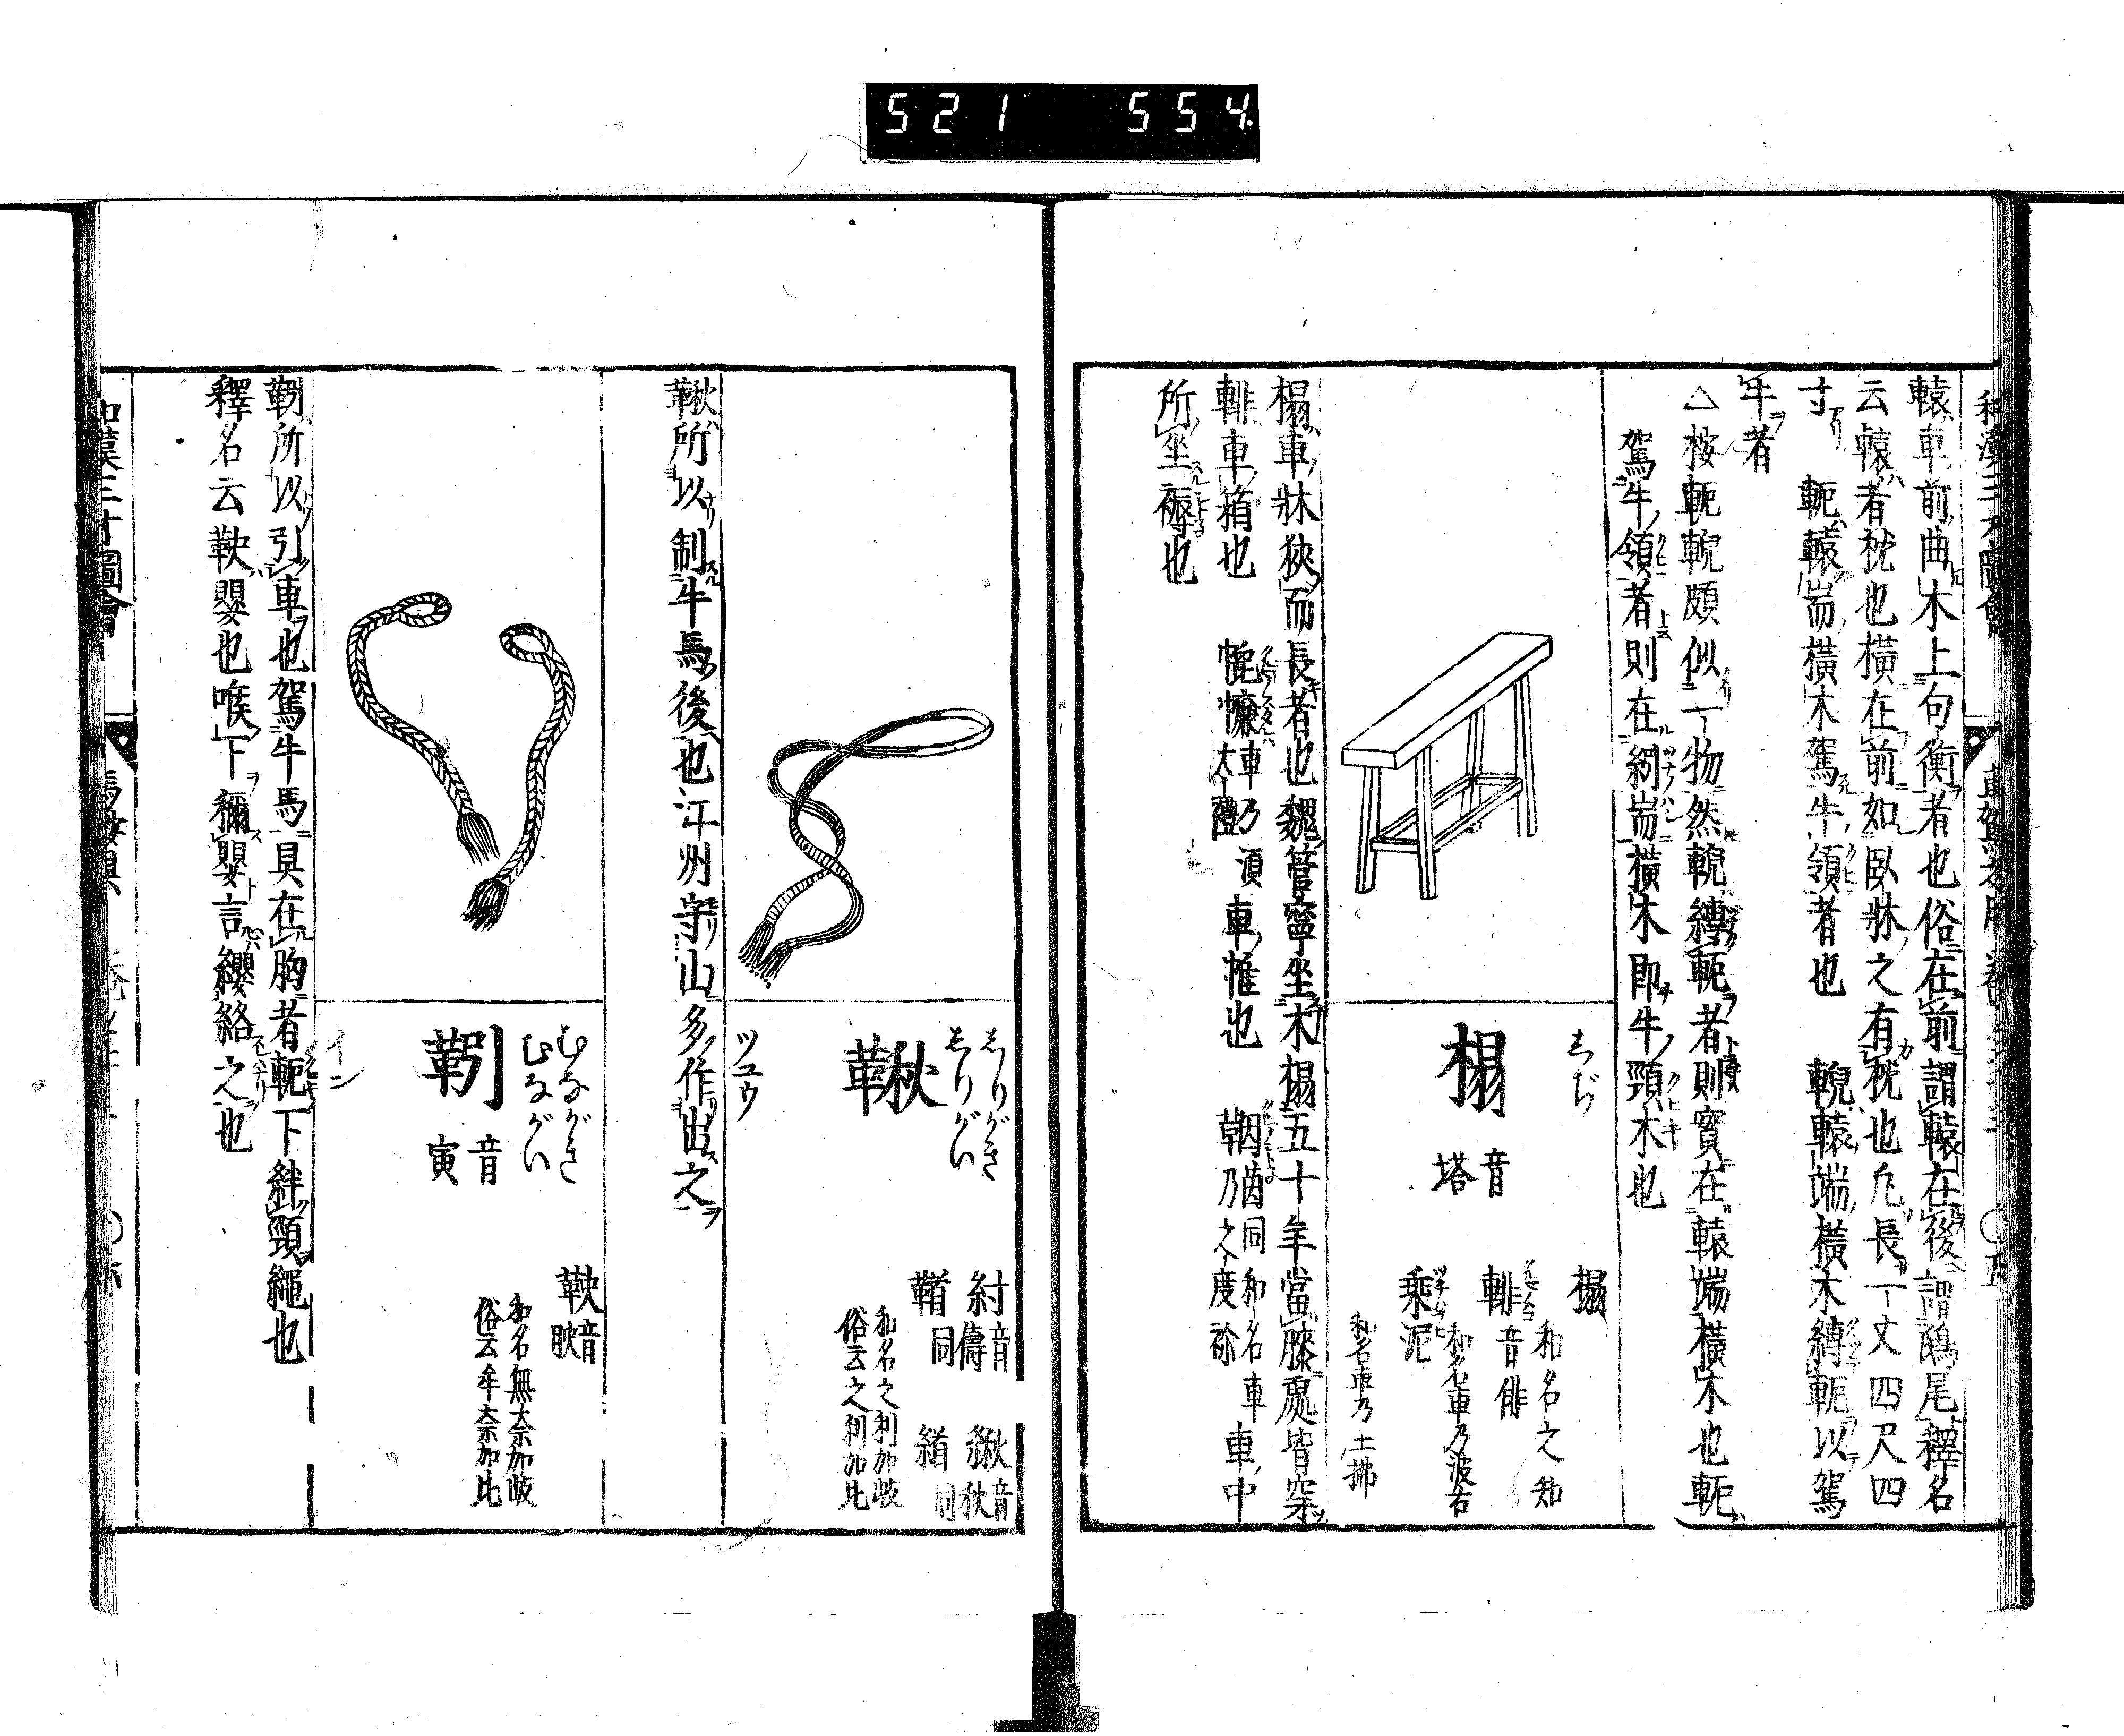 521 554
轅車前曲木上句衡者也俗在前謂轅在後謂鴟尾釋名
云轅者枕也橫在前如臥牀之有枕也凡長一丈四尺四
寸 軛轅耑橫木駕牛領者也 輗轅端橫木縛軛以駕
牛者
△按軛輗頗似一物然輗縛軛者則實在轅端橫木也軛
駕牛領者則在䋄耑橫木卽牛頸木也
しぢ
榻
音塔
榻 和名之知
輫 音俳 和名車乃波古
乘泥 和名車乃土拂
榻車牀狹而長者也魏管寧坐木榻五十年當膝處皆穿
輫車箱也 㡙㡘車乃太禮 湏車帷也 鞇茵同和名車乃之度禰 車中
所坐褥也
しりがき
しりがい
鞦
ツユウ
紂音儔 緧音秋
鞧同 緧同
和名之利加岐
俗云之利加比
鞦所以制牛馬後也江州守山多作出之
むながき
むながい
靷
音寅
イン
鞅音映
和名無奈加岐
俗云牟奈加比
靷所以引車也駕牛馬具在胸者軛下絆頸繩也
釋名云鞅嬰也喉下稱嬰言纓絡之也